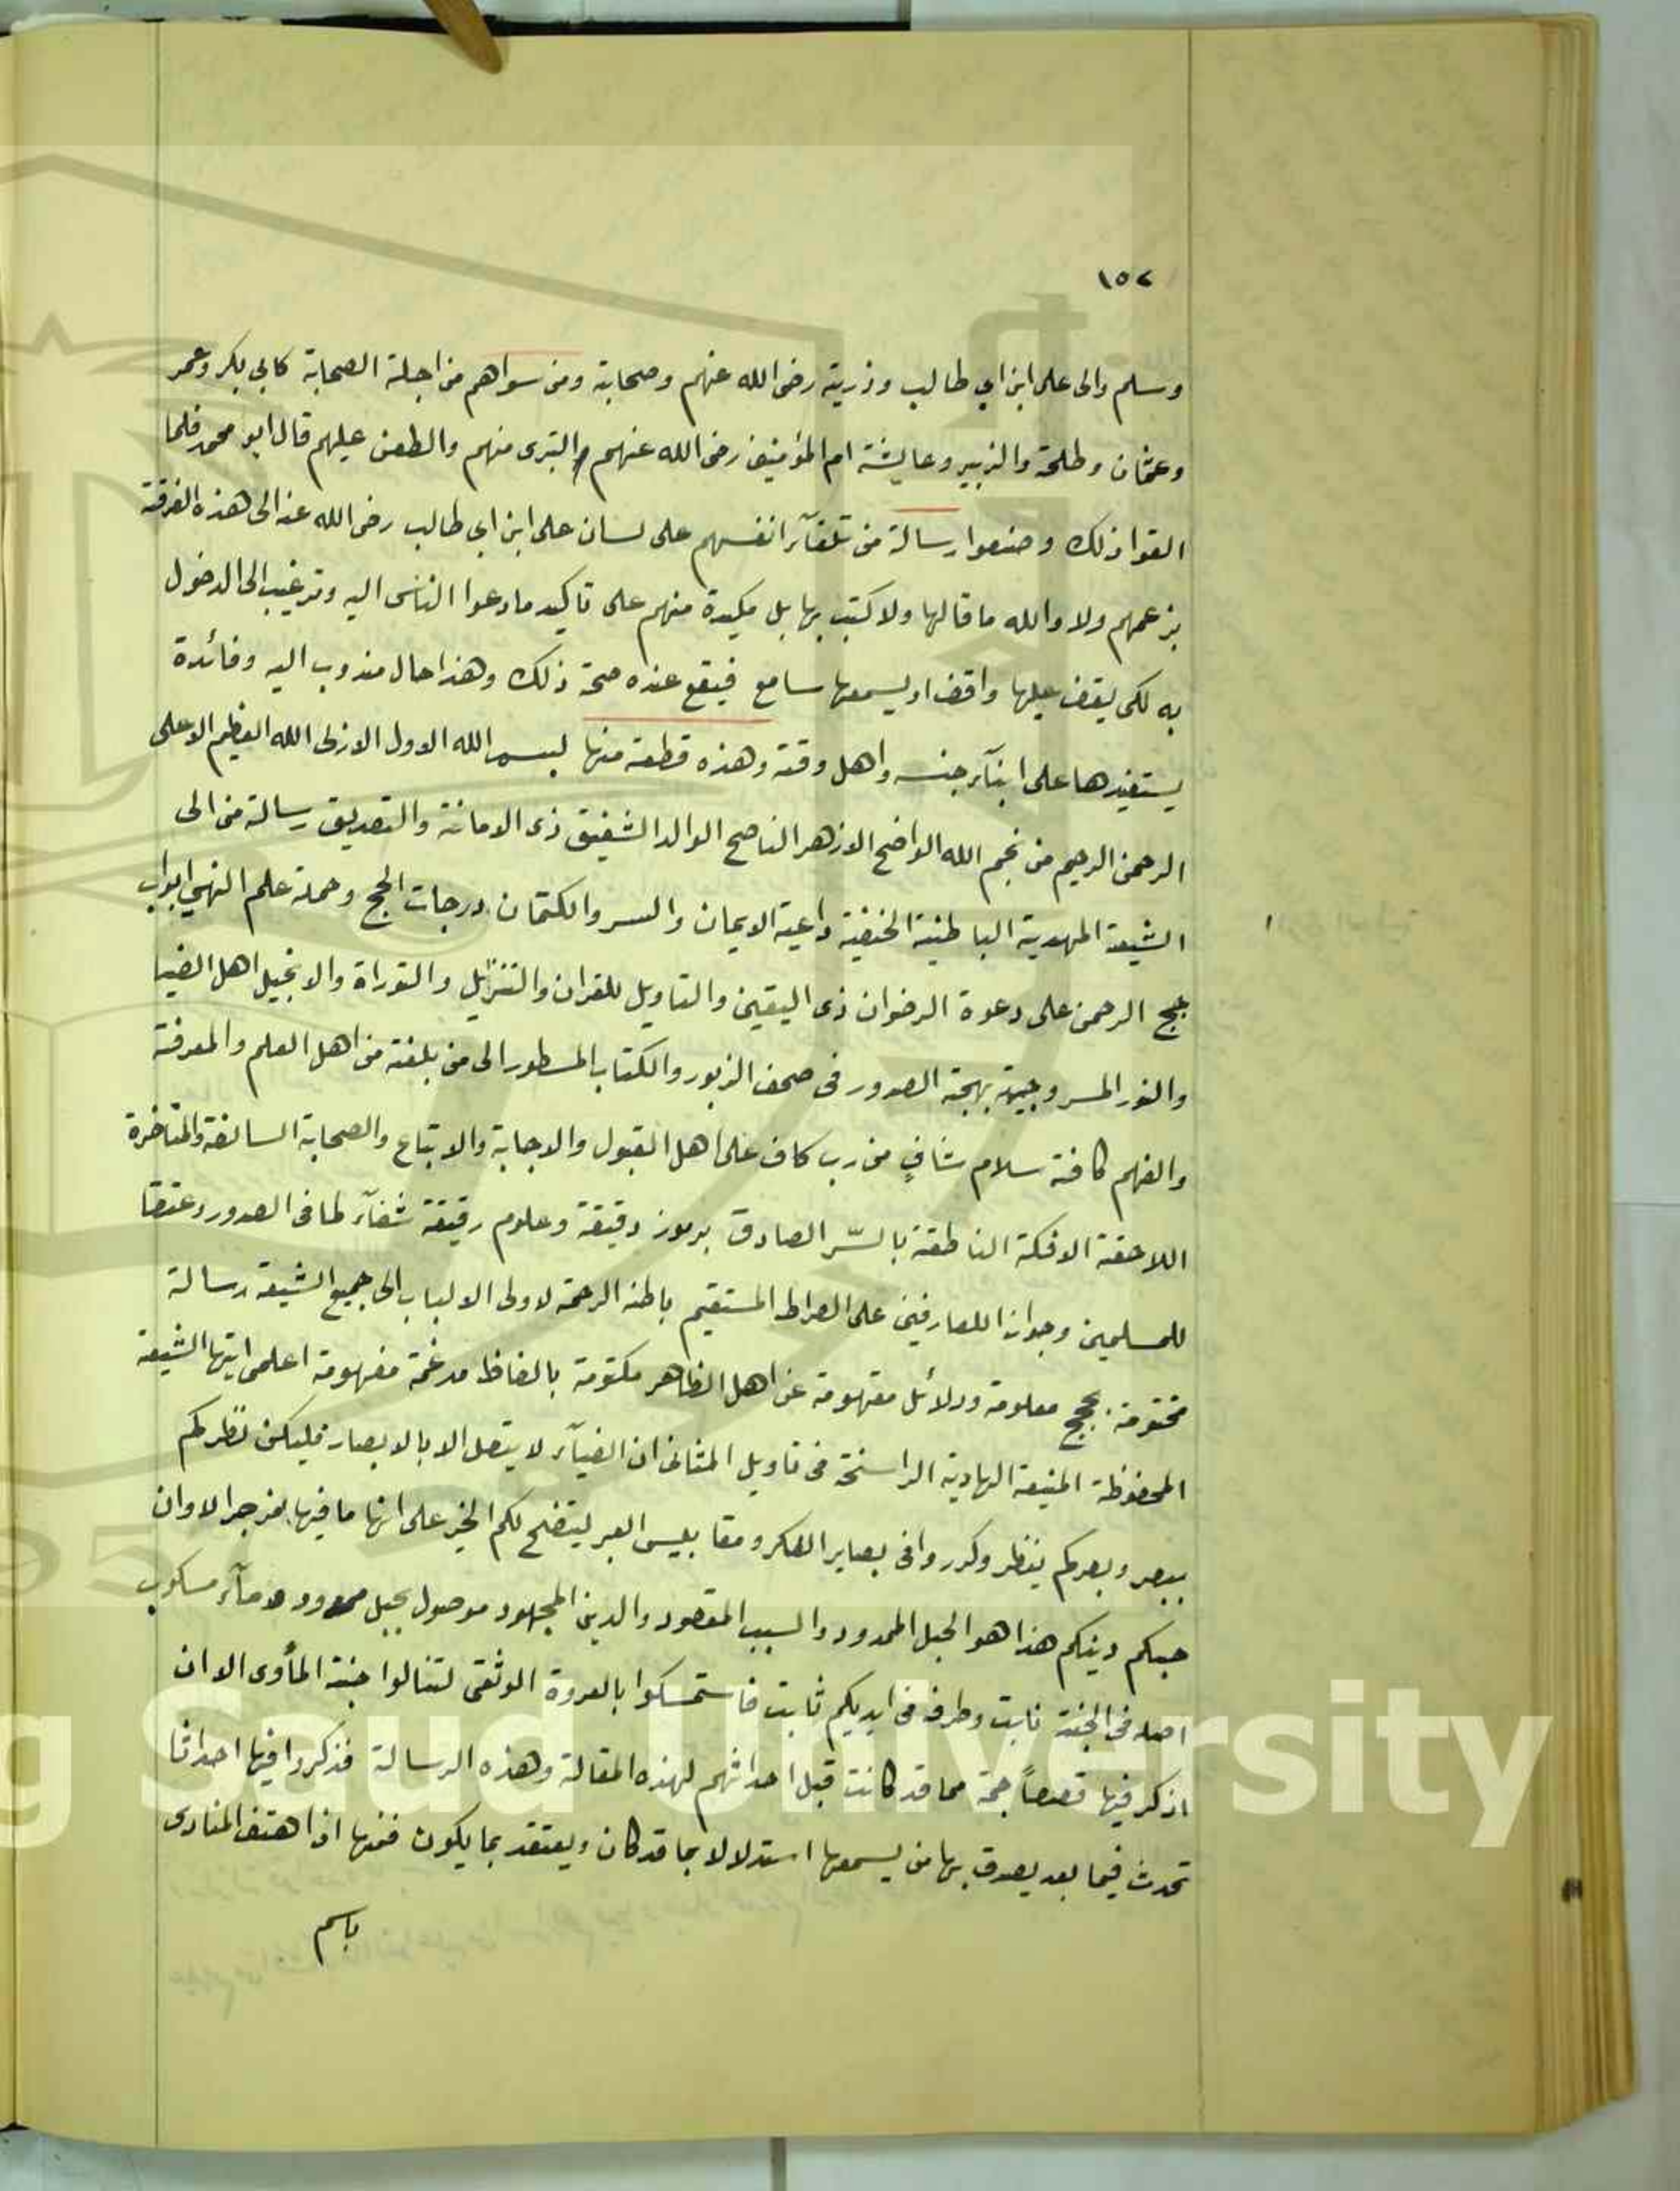 ١٥٢
وسلم والى على ابن ابي طالب وذريته رضى الله عنهم وصحابته ومن سواهم من اجلة الصحابة كابي بكر وعمر
وعثمان وطلحة والزبير وعايشة ام المؤمنين رضى الله عنهم والتبرى منهم والطعن عليهم قال ابو محمد فلما
القوا ذلك وضعوا رسالة من تلقآء انفسهم على لسان على ابن ابي طالب رضى الله عنه الى هذه الفرقة
بزعمهم ولا والله ما قالها ولا كتب بها بل مكيدة منهم على تاكيد ما دعوا الناس اليه وترغيب الى الدخول
به لكى يقف عليها واقف او يسمعها سامع فيقع عنده صحة ذلك وهذا حال مندوب اليه وفائدة
يستفيدها على ابنآء جنسه واهل وقته وهذه قطعة منها بسم الله الاول الازلى الله العظيم الاعلى
الرحمن الرحيم من نجم الله الواضح الازهر الناصح الوالد الشفيق ذى الامانة والتصديق رسالة من الى
الشيعة المهدية الباطنية الخفية داعية الايمان والسر والكتمان درجات الحج وحملة علم النهى ابواب
حجج الرحمن على دعوة الرضوان ذى اليقين والتاويل للقران والتنزيل والتوراة والانجيل اهل الضيا
والنور المسر وجيهة بهجة الصدور فى صحف الزبور والكتاب المسطور الى من بلغته من اهل العلم والمعرفة
والفهم كافة سلام شافٍ من رب كاف على اهل القبول والاجابة والاتباع والصحابة السالفة والمتاخرة
اللاحقة الافكة الناطقة بالسّر الصادق برموز دقيقة وعلوم رقيقة شفآء لما فى الصدور وعتقا
للمسلمين وجوازا للعارفين على الصراط المستقيم باطنه الرحمة لاولى الالباب الى جميع الشيعة رسالة
مختومة بحجج معلومة ودلائل مفهومة عن اهل الظاهر مكتومة بالفاظ مدغمة مفهومة اعلمى ايتها الشيعة
المحفوظة المنيعة الهادية الراسخة فى تاويل المثانى ان الضيآء لا يتصل الا بالابصار فليكن نظركم
ببصر وبصركم ينظر وكرروا فى بصاير الفكر ومقاييس العبر ليتضح لكم الخير على انها ما فيها مزجر الاوان
حبكم دينكم هذا هو الحبل الممدود والسبب المقصود والدين المجهود موصول بحبل ممدود ومآء مسكوب
اصله فى الجنة نابت وطرفه فى ايديكم ثابت فاستمسكوا بالعروة الوثقى لتنالوا جنة المأوى الا ان
اذكر فيها قصصاً جمة مما قد كانت قبل احداثهم لهذه المقالة وهذه الرسالة فذكروا فيها احداثا
تحدث فيما بعد يصدق بها من يسمعها استدلالا بما قد كان ويعتقد بما يكون فمنها اذا هتف المنادى
باسم